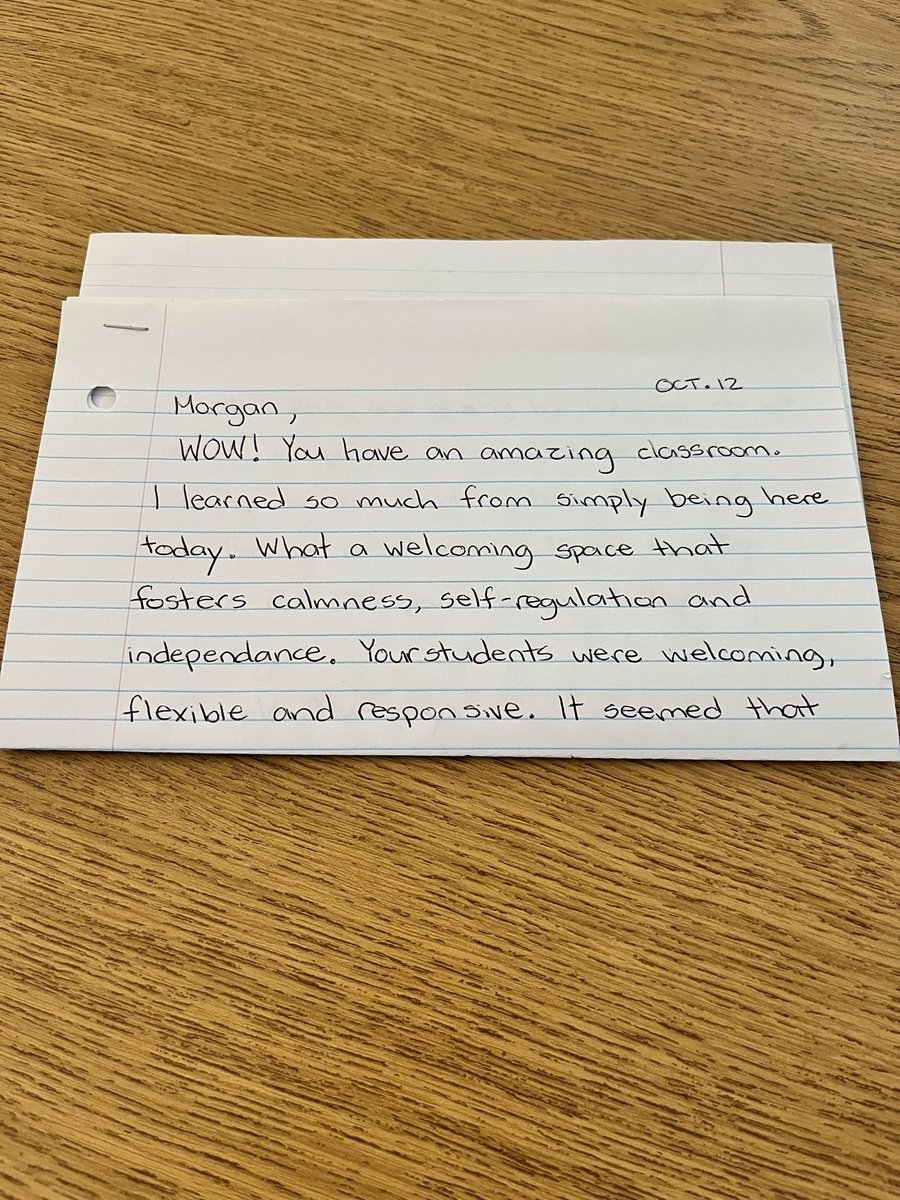 OCT. 12
Morgan,
WOW! You have an amazing classroom.
I learned so much from simply being here
today. What a welcoming space that
fosters calmness, self-regulation and
independance. Your students were welcoming,
flexible and responsive. It seemed that